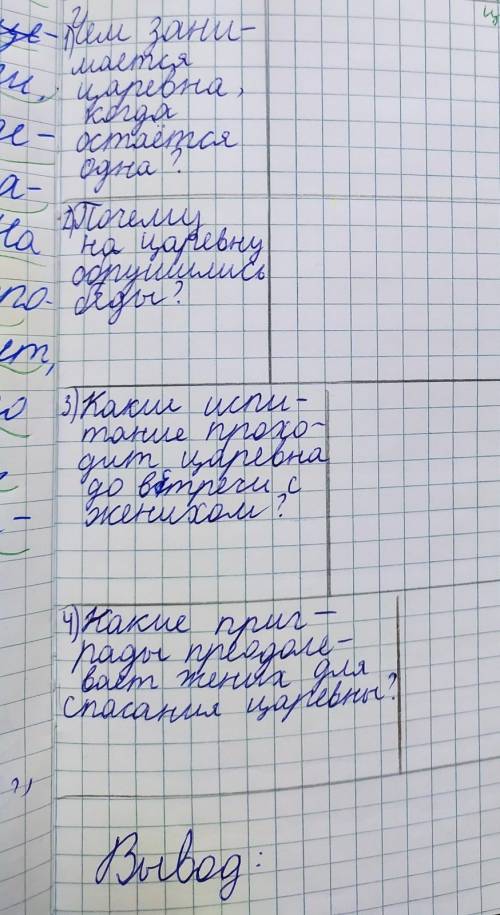 1) Чем зани-
мается
царевна,
когда
остаётся
одна?
2) Почему
на царевну
обрушились
беды?
3) Какие испы-
тание прохо-
дит царевна
до встречи с
женихом?
4) Какиеприг-
рады преодоле-
вает жених для
спасания царевны?
Вывод: